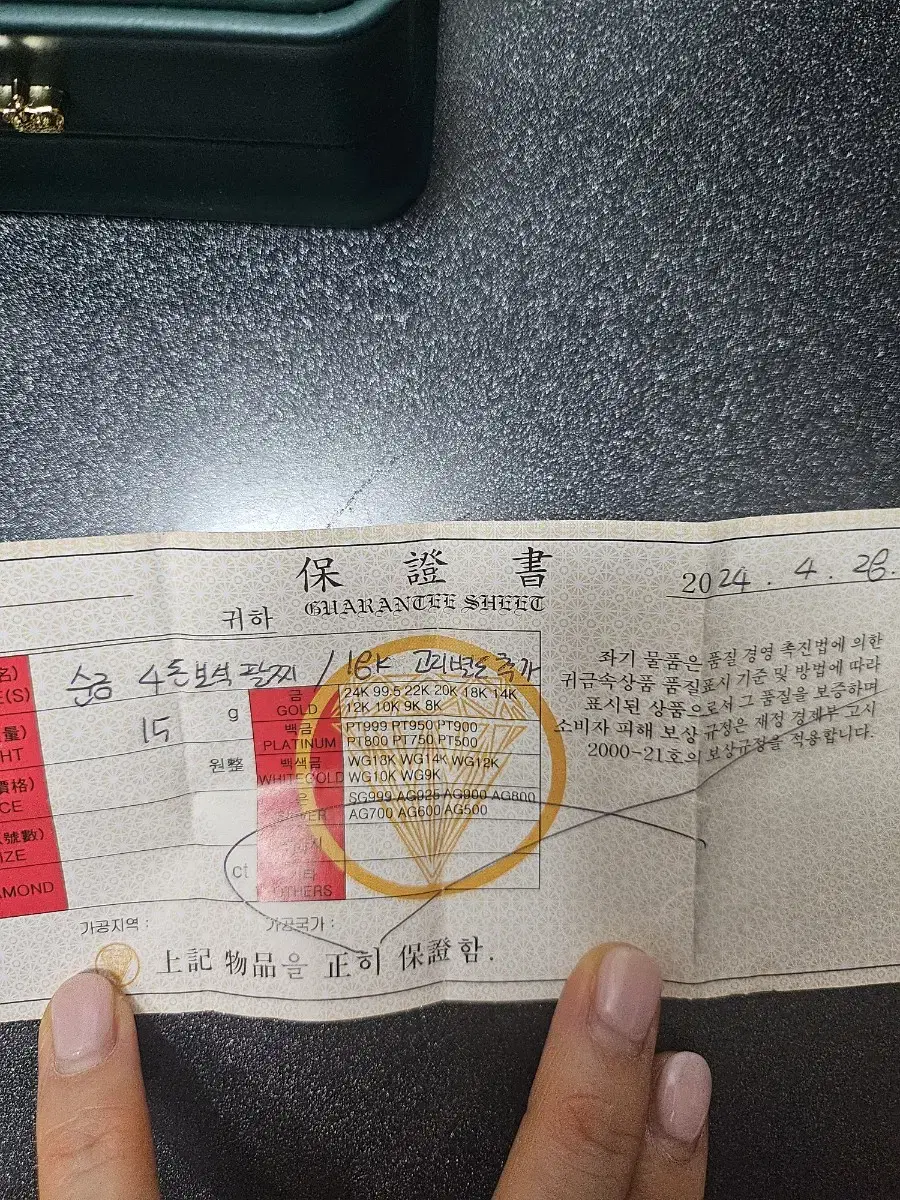 保 證 書
GUARANTEE SHEET
귀하
2024 . 4 . 28.
순금 4돈 보석 팔찌 / 18K 고리별도 추가
名)
E(S)
量)
HT
15 g
價格)
CE
원整
號數)
IZE
AMOND
ct
금
GOLD
24K 99.5 22K 20K 18K 14K
12K 10K 9K 8K
백금
PLATINUM
PT999 PT950 PT900
PT800 PT750 PT500
백색금
WHITEGOLD
WG18K WG14K WG12K
WG10K WG9K
은
SG999 AG925 AG900 AG800
AG700 AG600 AG500
기타
OTHERS
좌기 물품은 품질 경영 촉진법에 의한
귀금속상품 품질표시 기준 및 방법에 따라
표시된 상품으로서 그 품질을 보증하며
소비자 피해 보상 규정은 재정 경제부 고시
2000-21호의 보상규정을 적용합니다.
가공지역 :
가공국가 :
上記 物品을 正히 保證함.